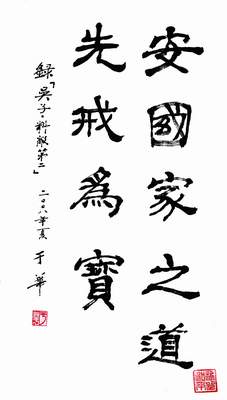 安國家之道
先戒為寶
錄「吳子·料敵第二」
二〇〇八年夏 于華